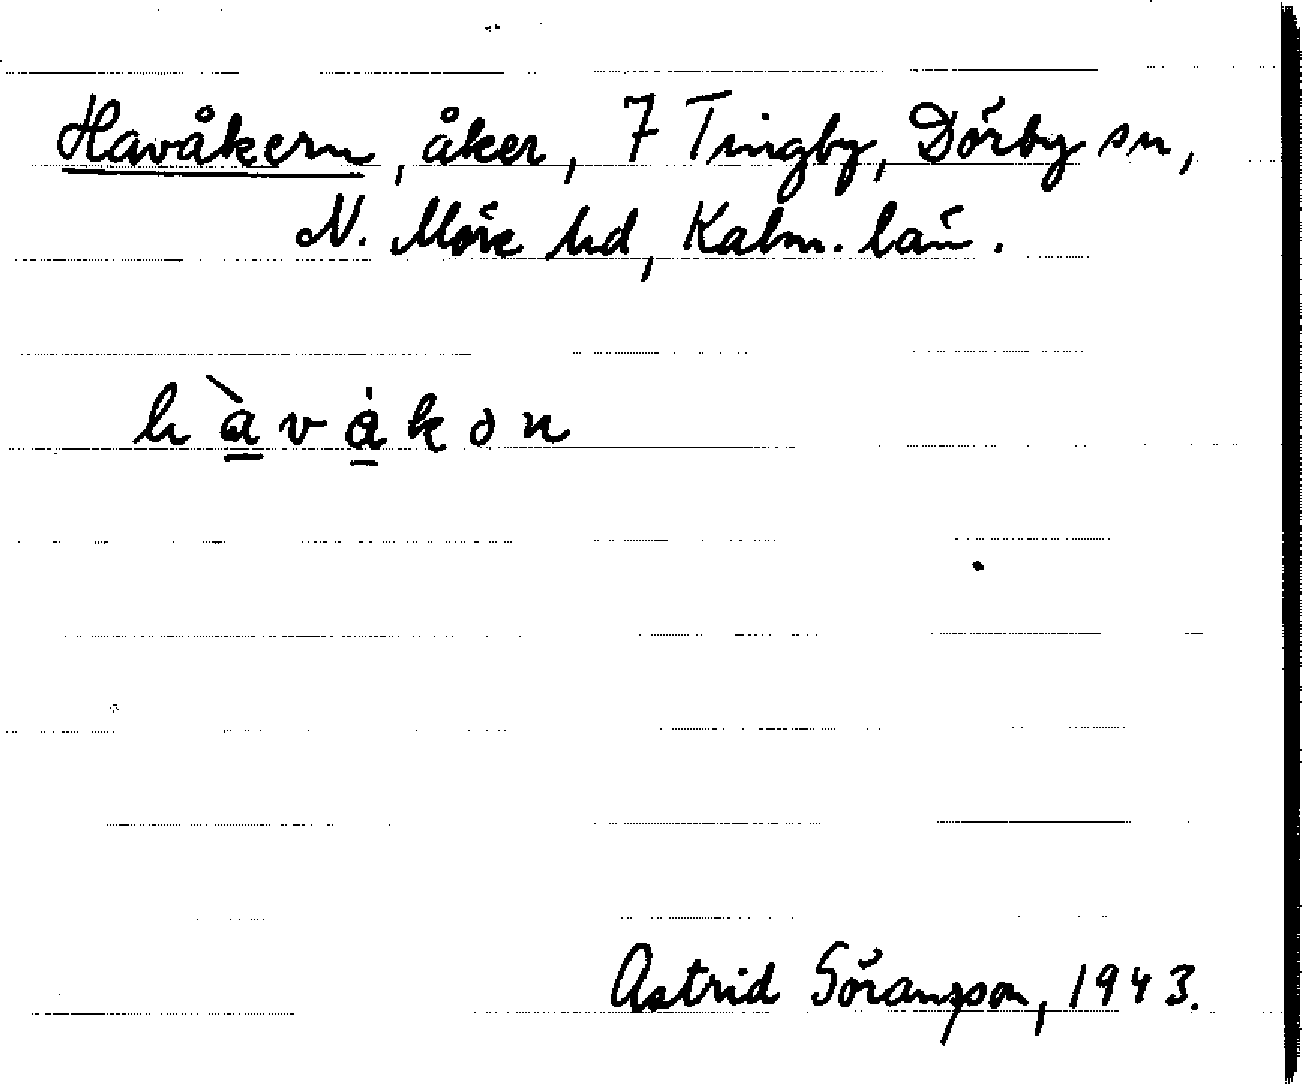 Havåkern, åker, 7 Tingby, Dörby sn,
N. Möre hd, Kalm. län.
hàvȧkən
Astrid Göransson, 1943.